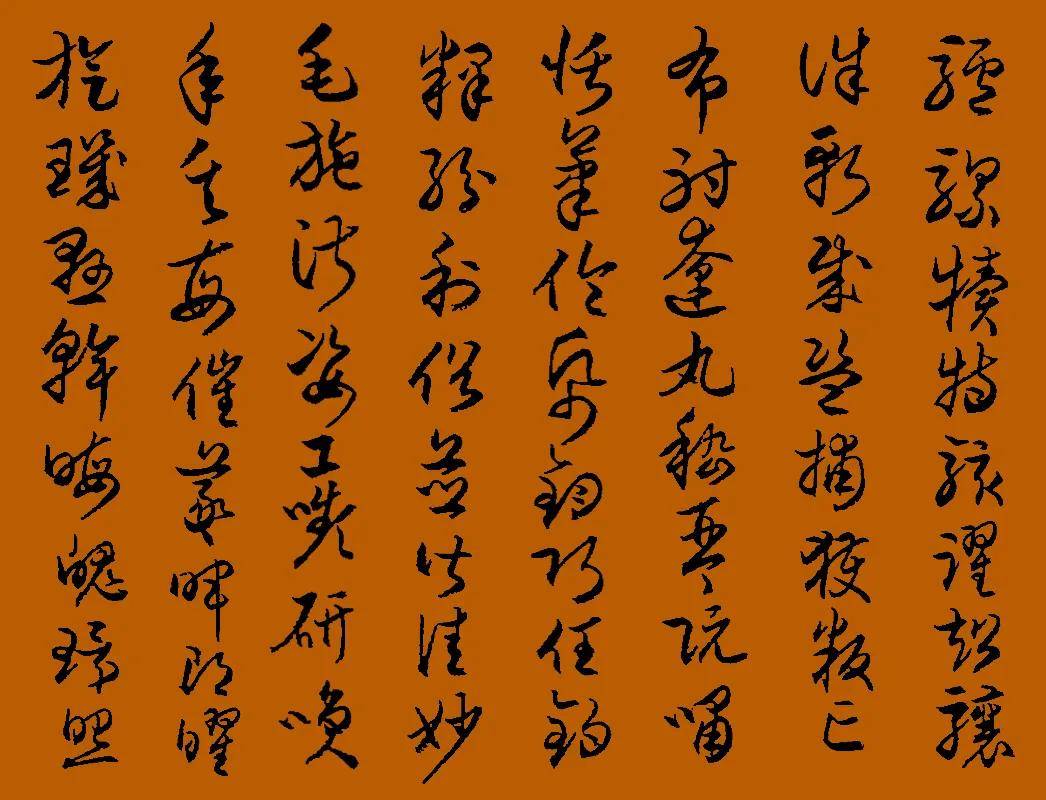 驢騾犢特駭躍超驤
誅斬賊盜捕獲叛亡
布射遼丸嵇琴阮嘯
恬筆倫帋鈞巧任釣
釋紛利俗並皆佳妙
毛施淑姿工嚬研咲
年矢每催羲暉朗曜
旋璣懸斡晦魄環照